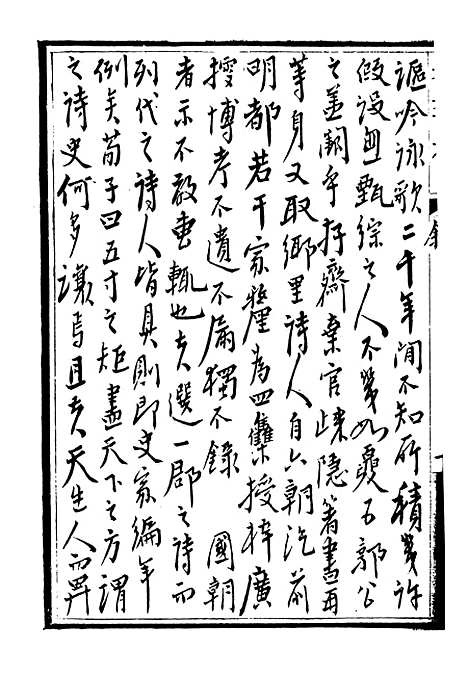 謳吟詠歌二千年間不知所積幾許
假設無甄綜之人不幾如夏五郭公
之並闕乎存齋棄官疎隱著書再
等身又取鄉里詩人自六朝迄前
明都若干家釐為四集授梓廣
搜博考不遺不濫獨不錄 國朝
者示不敢重輒也夫選一郡之詩而
列代之詩人皆具則即史家編年
例矣荀子四五寸之矩盡天下之方謂
之詩史何多讓焉且夫天生人而畀